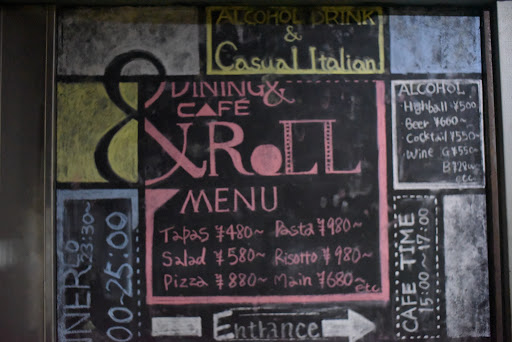 ALCOHOL DRINK
&
Casual Italian
DINING &
CAFÉ
&ROLL
MENU
Tapas ¥480~ Pasta ¥980~
Salad ¥580~ Risotto ¥980~
Pizza ¥880~ Main ¥680~
etc
ALCOHOL
Highball ¥500
Beer ¥660~
Cocktail ¥550~
Wine G¥550~
etc
23:30~
00~25:00
CAFE TIME
15:00~17:00
Entrance